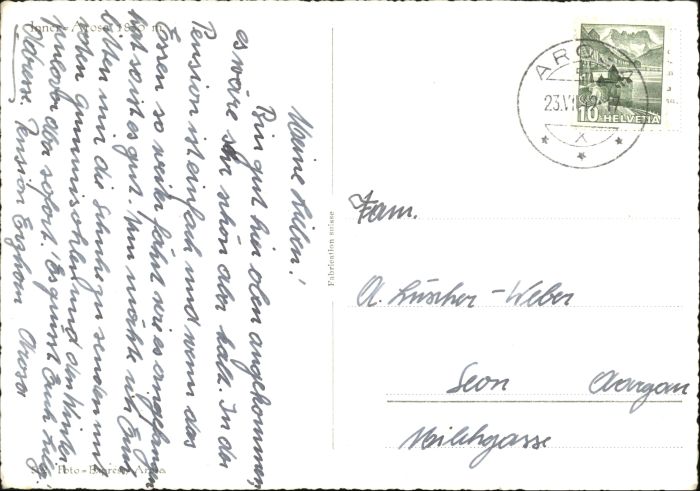 Inner-Arosa 1835 m
Meine Lieben!
Bin gut hier oben angekommen,
es wäre schön aber kalt. In der
Pension ist einfach und wenn das
Essen so weiter fährt wie es angefangen
hat so ist es gut. Nun möchte ich Euch
bitten mir die Schuhe zu senden mit
den Gummisohlen und den
aber sofort. Es grüsst Euch
Adresse. Pension Erzhorn Arosa
Foto-Express Arosa
Fabrication suisse
AROSA
23.VI
10 HELVETIA
Fam.
A. Lüscher-Weber
Seon Aargau
Milchgasse